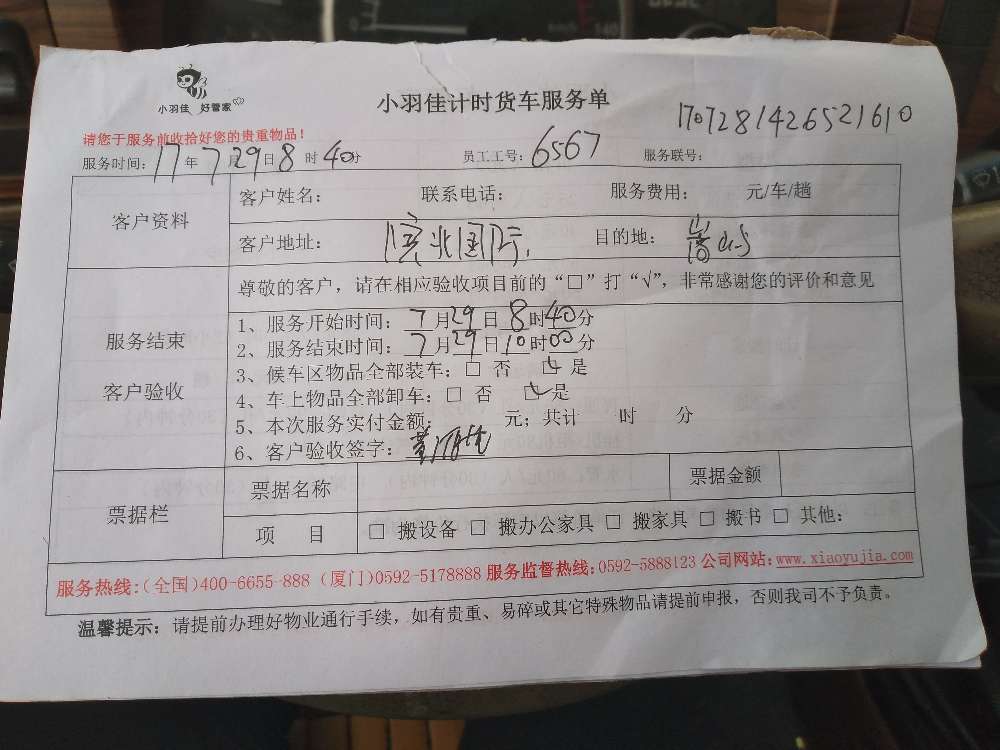 小羽佳 好管家
小羽佳计时货车服务单
170728142652​1610
请您于服务前收拾好您的贵重物品！
服务时间：17年7月29日8时40分 员工工号：6567 服务联号：
客户资料
客户姓名： 联系电话： 服务费用： 元/车/趟
客户地址：滨北国际 目的地：
服务结束
客户验收
尊敬的客户，请在相应验收项目前的“□”打“√”，非常感谢您的评价和意见
1、服务开始时间：7月29日8时40分
2、服务结束时间：7月29日10时00分
3、候车区物品全部装车：□ 否 ☑ 是
4、车上物品全部卸车：□ 否 ☑ 是
5、本次服务实付金额： 元；共计 时 分
6、客户验收签字：黄
票据栏
票据名称 票据金额
项 目 □ 搬设备 □ 搬办公家具 □ 搬家具 □ 搬书 □ 其他：
服务热线：（全国）400-6655-888（厦门）0592-5178888 服务监督热线：0592-5888123 公司网站：www.xiaoyujia.com
温馨提示：请提前办理好物业通行手续，如有贵重、易碎或其它特殊物品请提前申报，否则我司不予负责。